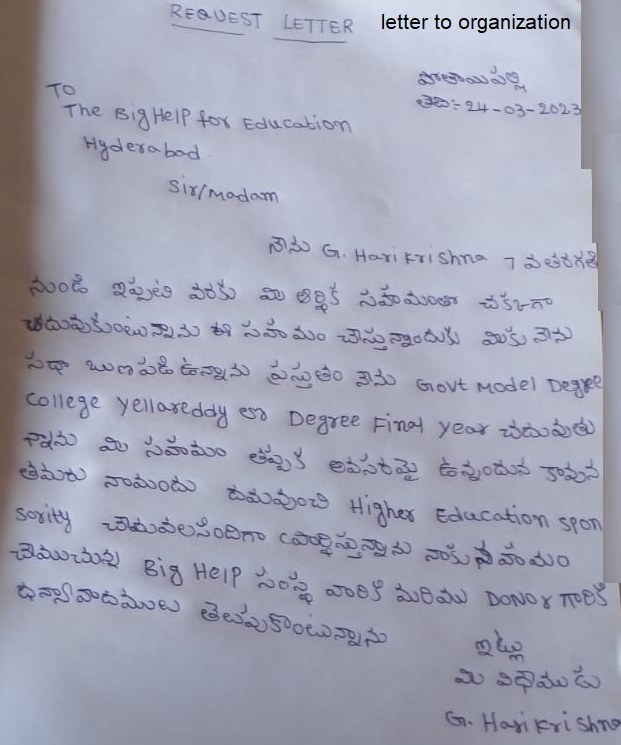 REQUEST LETTER letter to organization
పోతాయిపల్లి
తేది:- 24-03-2023
To
The Big Help for Education
Hyderabad.
Sir/Madam
నేను G. Hari Krishna 7 వ తరగతి
నుండి ఇప్పటి వరకు మి ఆర్థిక సహయంతో చక్కగా
చదువుకుంటున్నాను ఈ సహయం చేస్తున్నందుకు మికు నేను
సదా ఋణపడి ఉన్నాను ప్రస్తుతం నేను Govt Model Degree
College Yellareddy లో Degree Final Year చదువుతు
న్నాను మి సహయం తప్పక అవసరమై ఉన్నందున కావున
తమరు నాయందు దయవుంచి Higher Education spon
sority చేయవలసిందిగా ప్రార్థిస్తున్నాను నాకు సహయం
చేయుచున్న Big Help సంస్థ వారికి మరియు DONOr గారికి
ధన్యవాదములు తెలుపుకొంటున్నాను
ఇట్లు
మి విధేయుడు
G. Hari Krishna